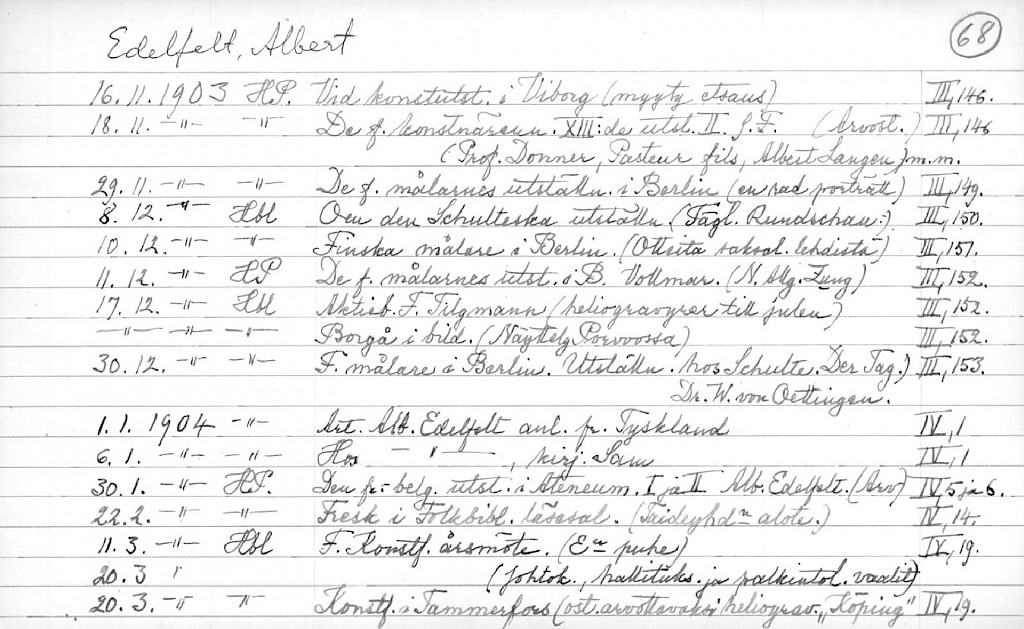 Edelfelt, Albert 68
16.11.1903 H.P. Vid konstutst. i Viborg (myyty etsaus) III, 146.
18.11. -"- -"- De f. konstnärern. XIII:de utst. II. J.F. (Arvost.) III, 146
(Prof. Donner, Pasteur fils, Albert Langen) m.m.
29.11. -"- -"- De f. målarnes utställn. i Berlin (en rad porträtt) III, 149.
8.12. -"- Hbl Om den Schulteska utställn. (Tägl. Rundschau.) III, 150.
10.12. -"- -"- Finska målare i Berlin. (Otteita saksal. lehdistä) III, 151.
11.12. -"- HP De f. målarnes utst. i B. Vollmar. (N. Allg. Zung) III, 152.
17.12. -"- Hbl Aktieb. F. Tilgmann (heliogravyrer till julen) III, 152.
-"- -"- -"- Borgå i bild. (Näyttely Porvoossa) III, 152.
30.12. -"- -"- F. målare i Berlin. Utställn. hos Schulte. Der Tag.) III, 153.
Dr. W. von Oettingen.
1.1. 1904 -"- Art. Alb. Edelfelt anl. fr. Tyskland IV, 1
6.1. -"- -"- -"-, kirj. Sam IV, 1
30.1. -"- H.P. Den fr.-belg. utst. i Ateneum. I ja II Alb. Edelfelt. (Arv) IV, 5 ja 6.
22.2. -"- -"- Fresk i Folkbibl. läsesal. (Taideyhdn alote.) IV, 14.
11.3. -"- Hbl F. Konstf. årsmöte. (En puhe) IV, 19.
20.3 " (Johtok., hallituks. ja palkintol. vaalit)
20.3. -"- -"- Konstf. i Tammerfors (ost. arvottavaksi heliograv. "Köping" IV, 19.